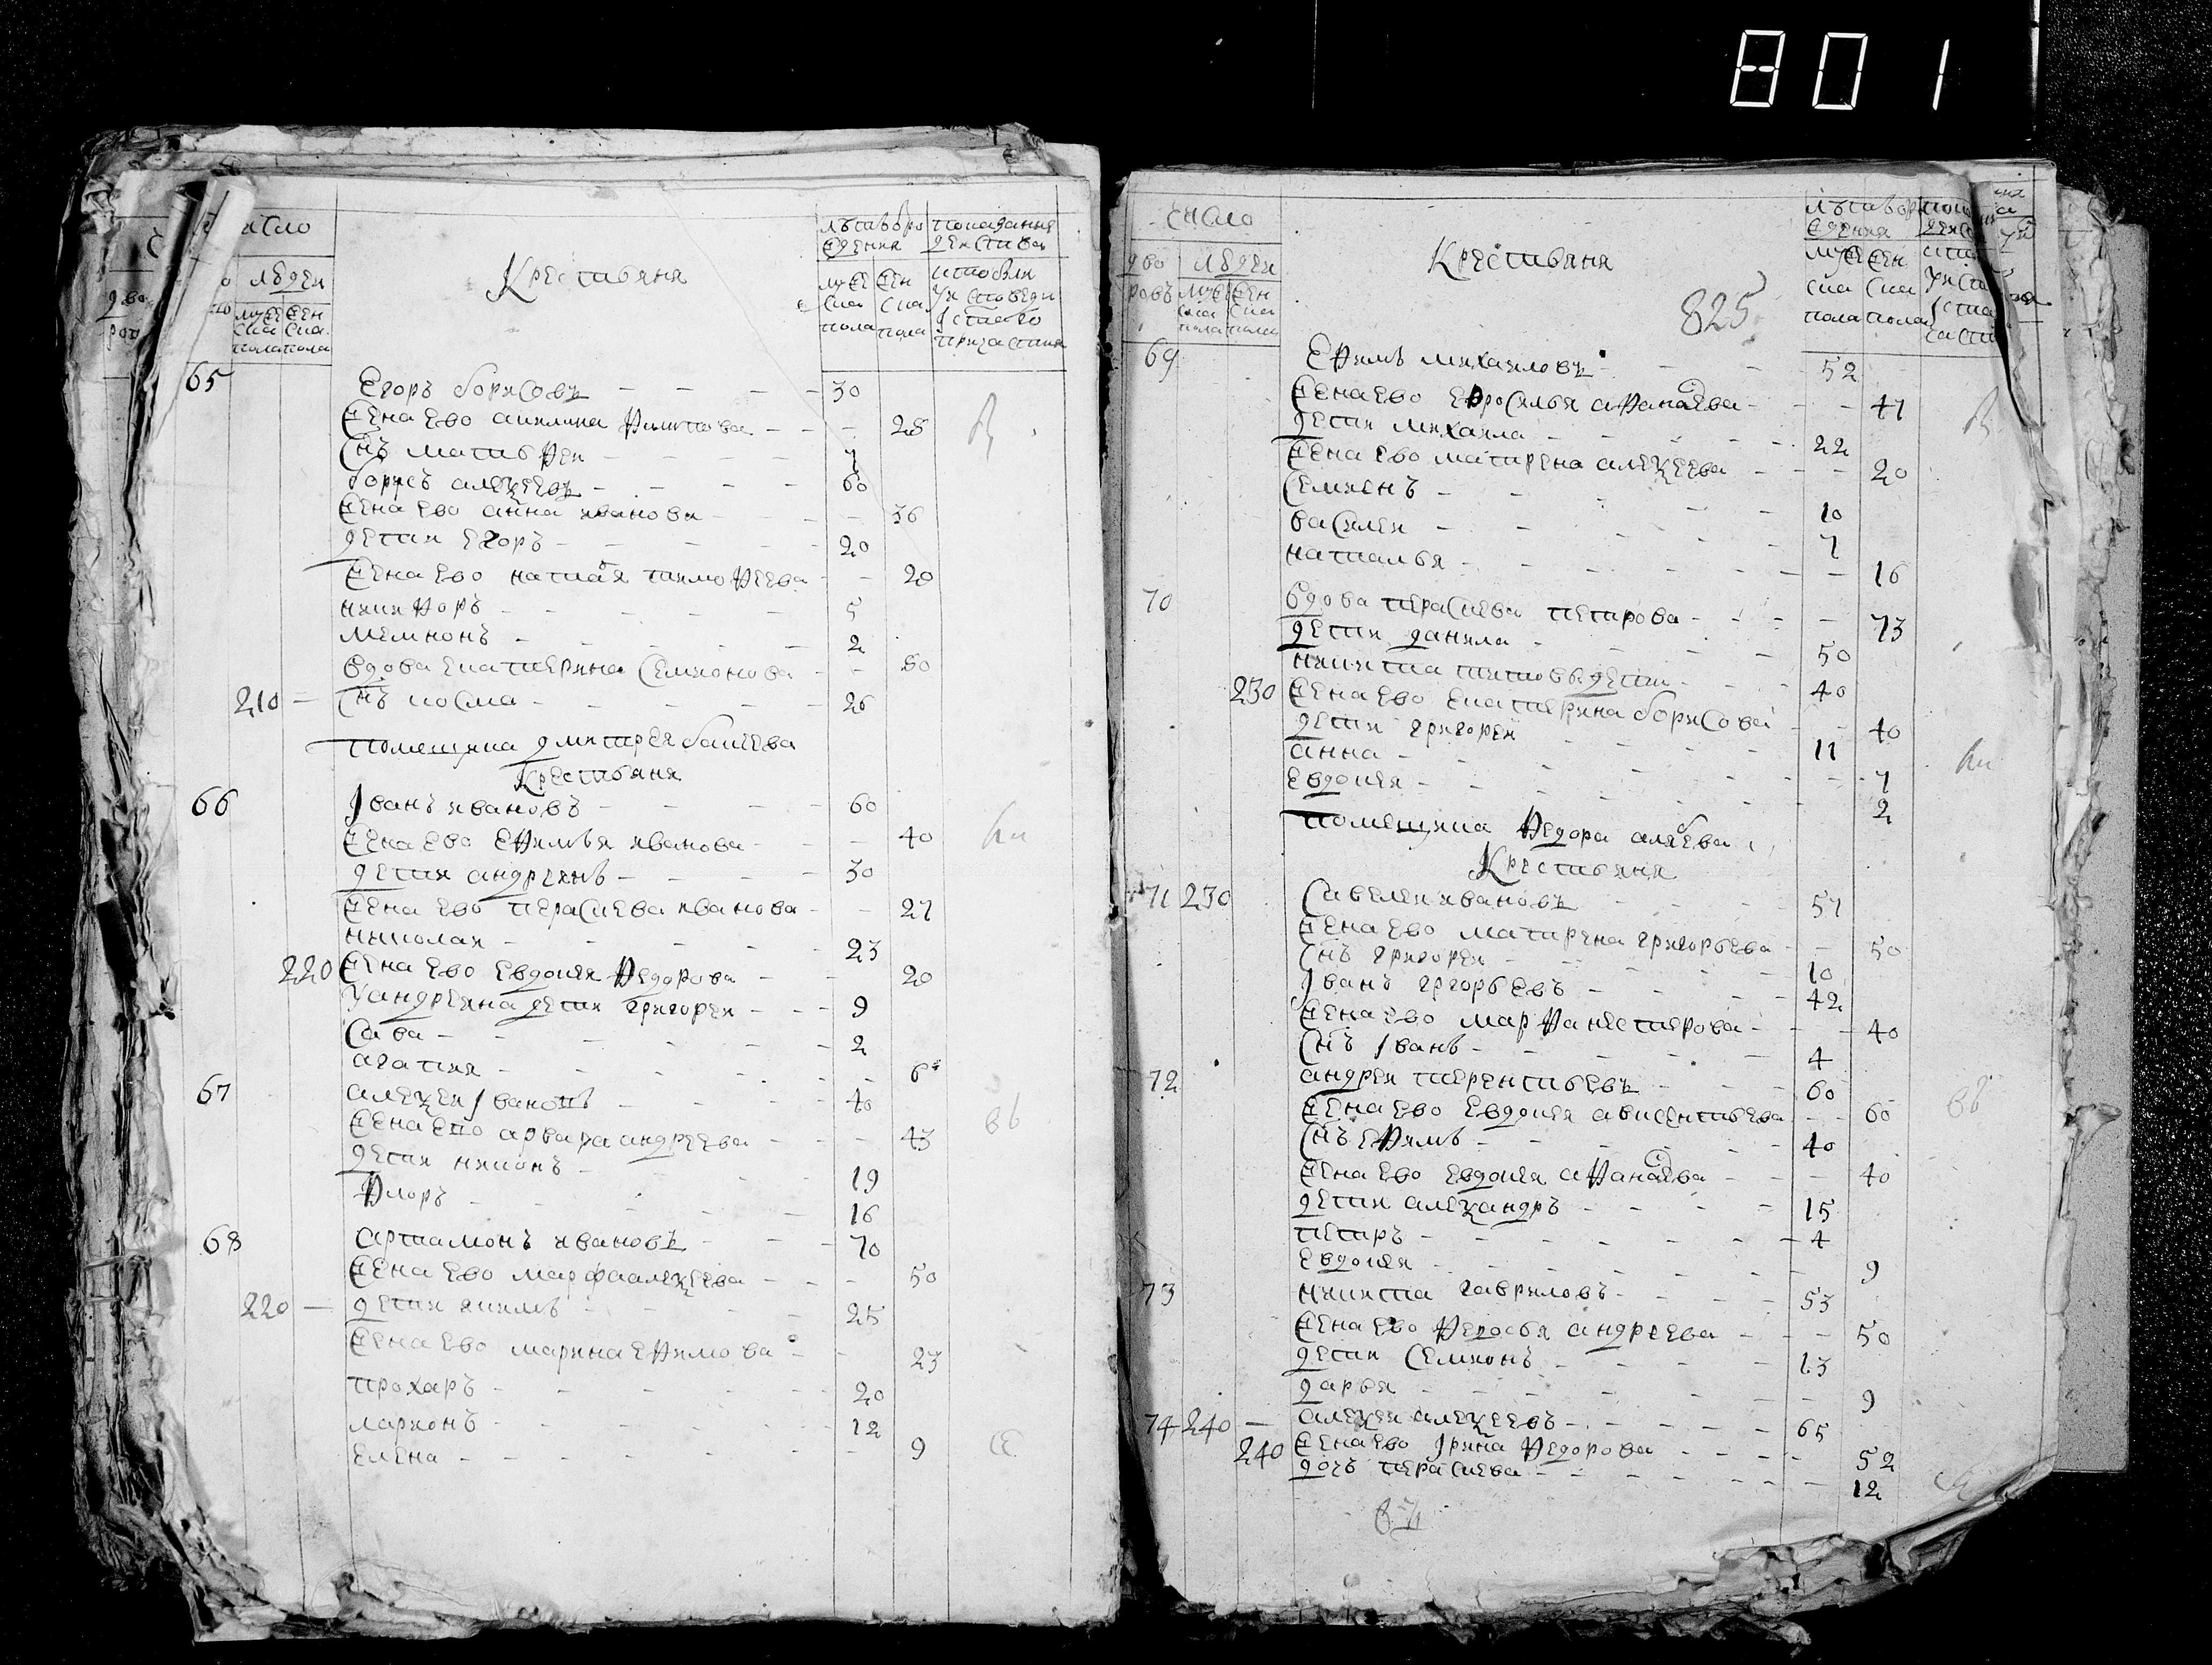 801
число
людей
мужеска пола
женска пола
Крестьяня
лѣта от рождения
мужеска пола
женска пола
показание действа
кто были у исповеди и святаго причастия
65 Егоръ борисовъ 30
жена ево акилина филипова 28
снъ матвѣи 7
борисъ алеѯеевъ 60
жена ево анна иванова 36
дети егоръ 20
жена ево наталя тимофеева 20
никифоръ 5
мемнонъ 2
вдова екатерина семионова 80
210 снъ косма 26
помещика дмитрея бакеева
Крестьяня
66 Iванъ ивановъ 60
жена ево ефимья иванова 40
дети андреянъ 30
жена ево параскева иванова 27
николаи 23
220 жена ево евдокия федорова 20
у андреяна дети григореи 9
сава 2
агапия 6
67 алеѯеи Iвановъ 40
жена ево варвара андреева 43
дети никонъ 19
флоръ 16
68 артамонъ ивановъ 70
жена ево марфа алеѯеева 50
220 дети якимъ 25
жена ево марина ефимова 23
прохаръ 20
ларионъ 12
елена 9
число
дворовъ
людей
мужеска пола
женска пола
Крестьяня
825
лѣта от рождения
мужеска пола
женска пола
69 Ефимъ михаиловъ 52
жена ево ефросинья афанасева 47
дети михаила 22
жена ево матрена алеѯеева 20
семионъ 10
василеи 7
наталья 16
70 вдова параскева петрова 73
дети данила 50
никита титовъ дети 40
230 жена ево екатерина борисова 40
дети григореи 11
анна 7
евдокия 2
помещика федора алябева
Крестьяня
71 230 савелеи ивановъ 57
жена ево матрена григорьева 50
снъ григореи 10
Iванъ григорьевъ 42
жена ево марфа нестерова 40
снъ Iванъ 4
72 андреи терентьевъ 60
жена ево евдокия авксентьева 60
снъ ефимъ 40
жена ево евдокия афанасева 40
дети алеѯандръ 15
петръ 4
евдокия 9
73 никита гавриловъ 53
жена ево федосья андреева 50
дети семионъ 13
дарья 9
74 240 алеѯеи алеѯеевъ 65
240 жена ево Iрина федорова 52
дочь параскева 12